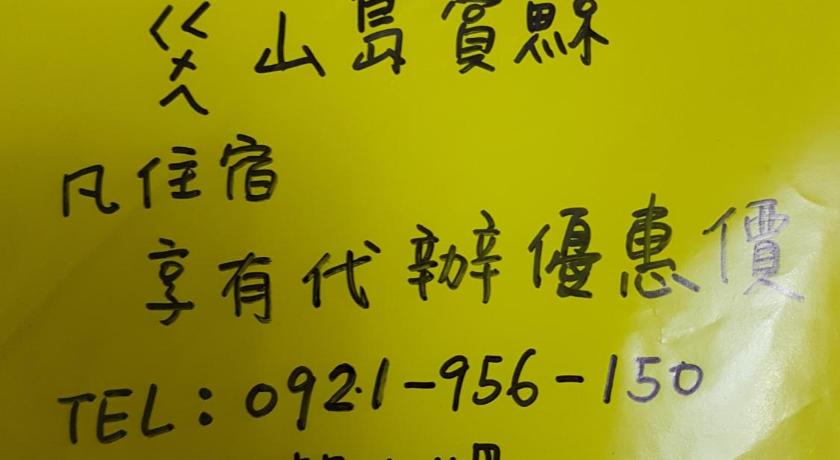 ㄍㄨㄟ山島賞鯨
凡住宿
享有代辦優惠價
TEL:0921-956-150